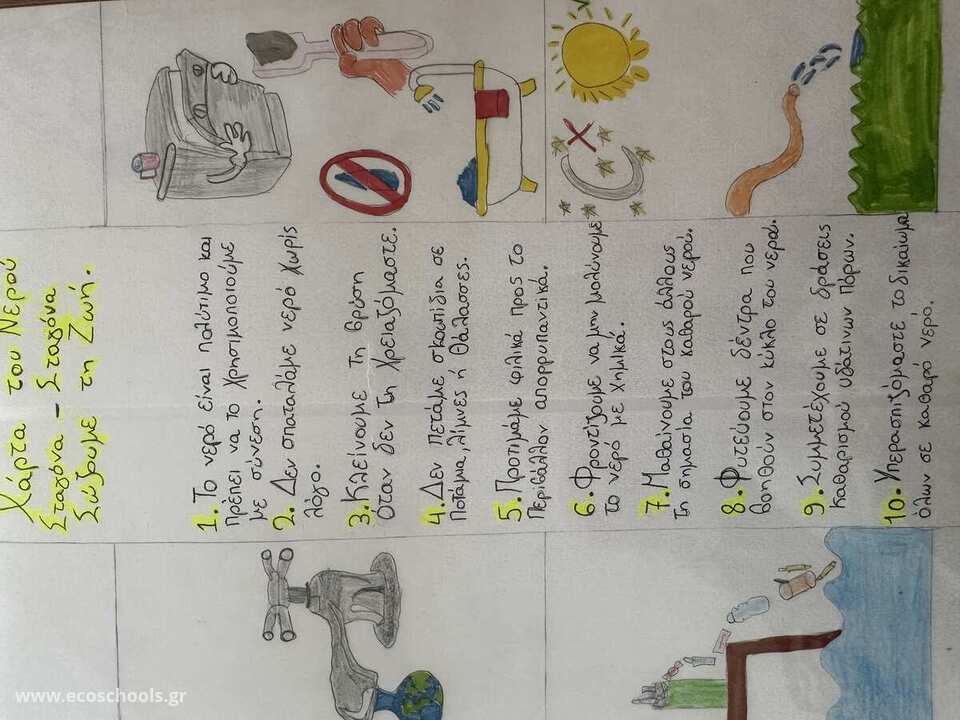 Χάρτα του Νερού
Σταγόνα - Σταγόνα
Σώζουμε τη Ζωή.
1. Το νερό είναι πολύτιμο και
πρέπει να το χρησιμοποιούμε
με σύνεση.
2. Δεν σπαταλάμε νερό χωρίς
λόγο.
3. Κλείνουμε τη βρύση
όταν δεν τη χρειαζόμαστε.
4. Δεν πετάμε σκουπίδια σε
ποταμια, λίμνες ή θάλασσες.
5. Προτιμάμε φιλικά προς το
περιβάλλον απορρυπαντικά.
6. Φροντίζουμε να μην μολύνουμε
το νερό με χημικά.
7. Μαθαίνουμε στους άλλους
τη σημασία του καθαρού νερού.
8. Φυτεύουμε δέντρα που
βοηθούν στον κύκλο του νερού.
9. Συμμετέχουμε σε δράσεις
καθαρισμού υδάτινων πόρων.
10. Υπερασπιζόμαστε το δικαίωμα
όλων σε καθαρό νερό.
www.ecoschools.gr